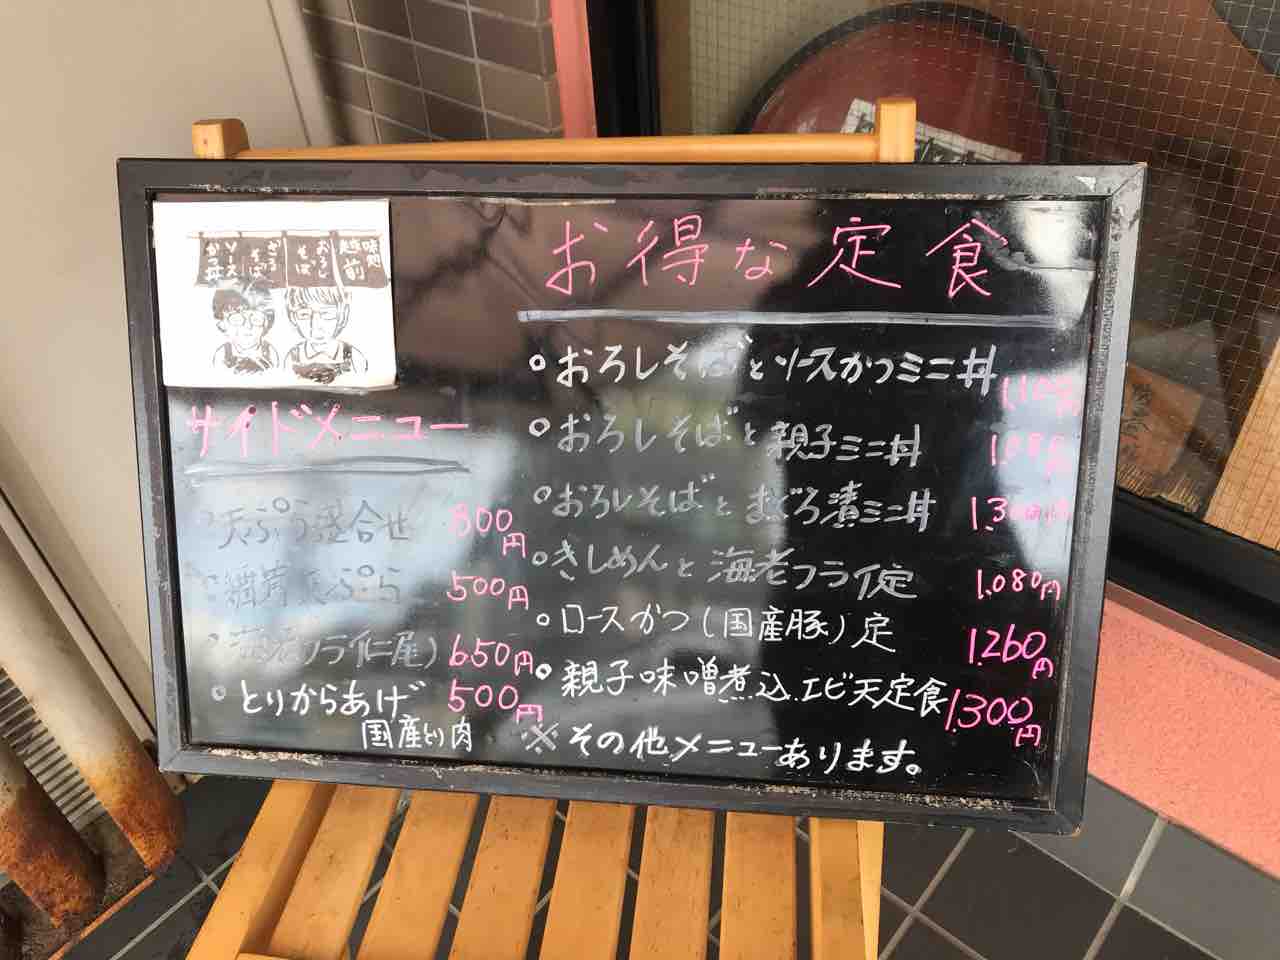 味処
越前
おろし
そば
ざる
そば
ソース
かつ丼
お得な定食
おろしそばとソースかつミニ丼
おろしそばと親子ミニ丼
おろしそばとまぐろ漬ミニ丼
きしめんと海老フライ定 1.080円
ロースかつ(国産豚)定 1260円
親子味噌煮込.エビ天定食 1.300円
※その他メニューあります。
サイドメニュー
天ぷら盛合せ 800円
天ぷら 500円
海老フライ(二尾) 650円
とりからあげ 500円
国産とり肉